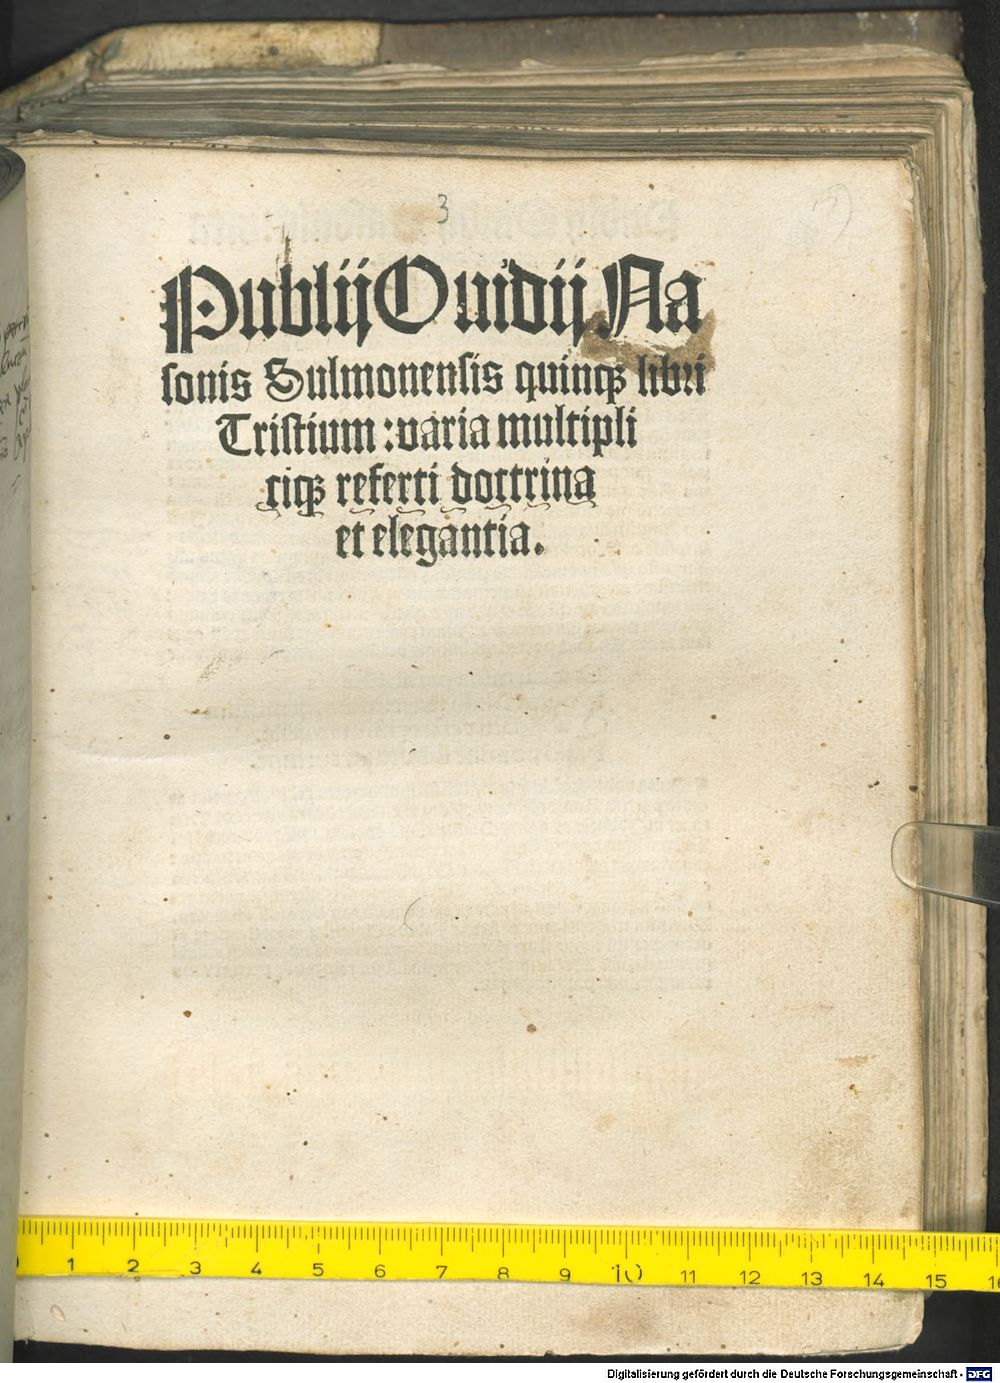 3
Publij Ouidij Na
sonis Sulmonensis quinqꝫ libri
Tristium : varia multipli
ciqꝫ referti doctrina
et elegantia.
1 2 3 4 5 6 7 8 9 10 11 12 13 14 15
Digitalisierung gefördert durch die Deutsche Forschungsgemeinschaft - DFG